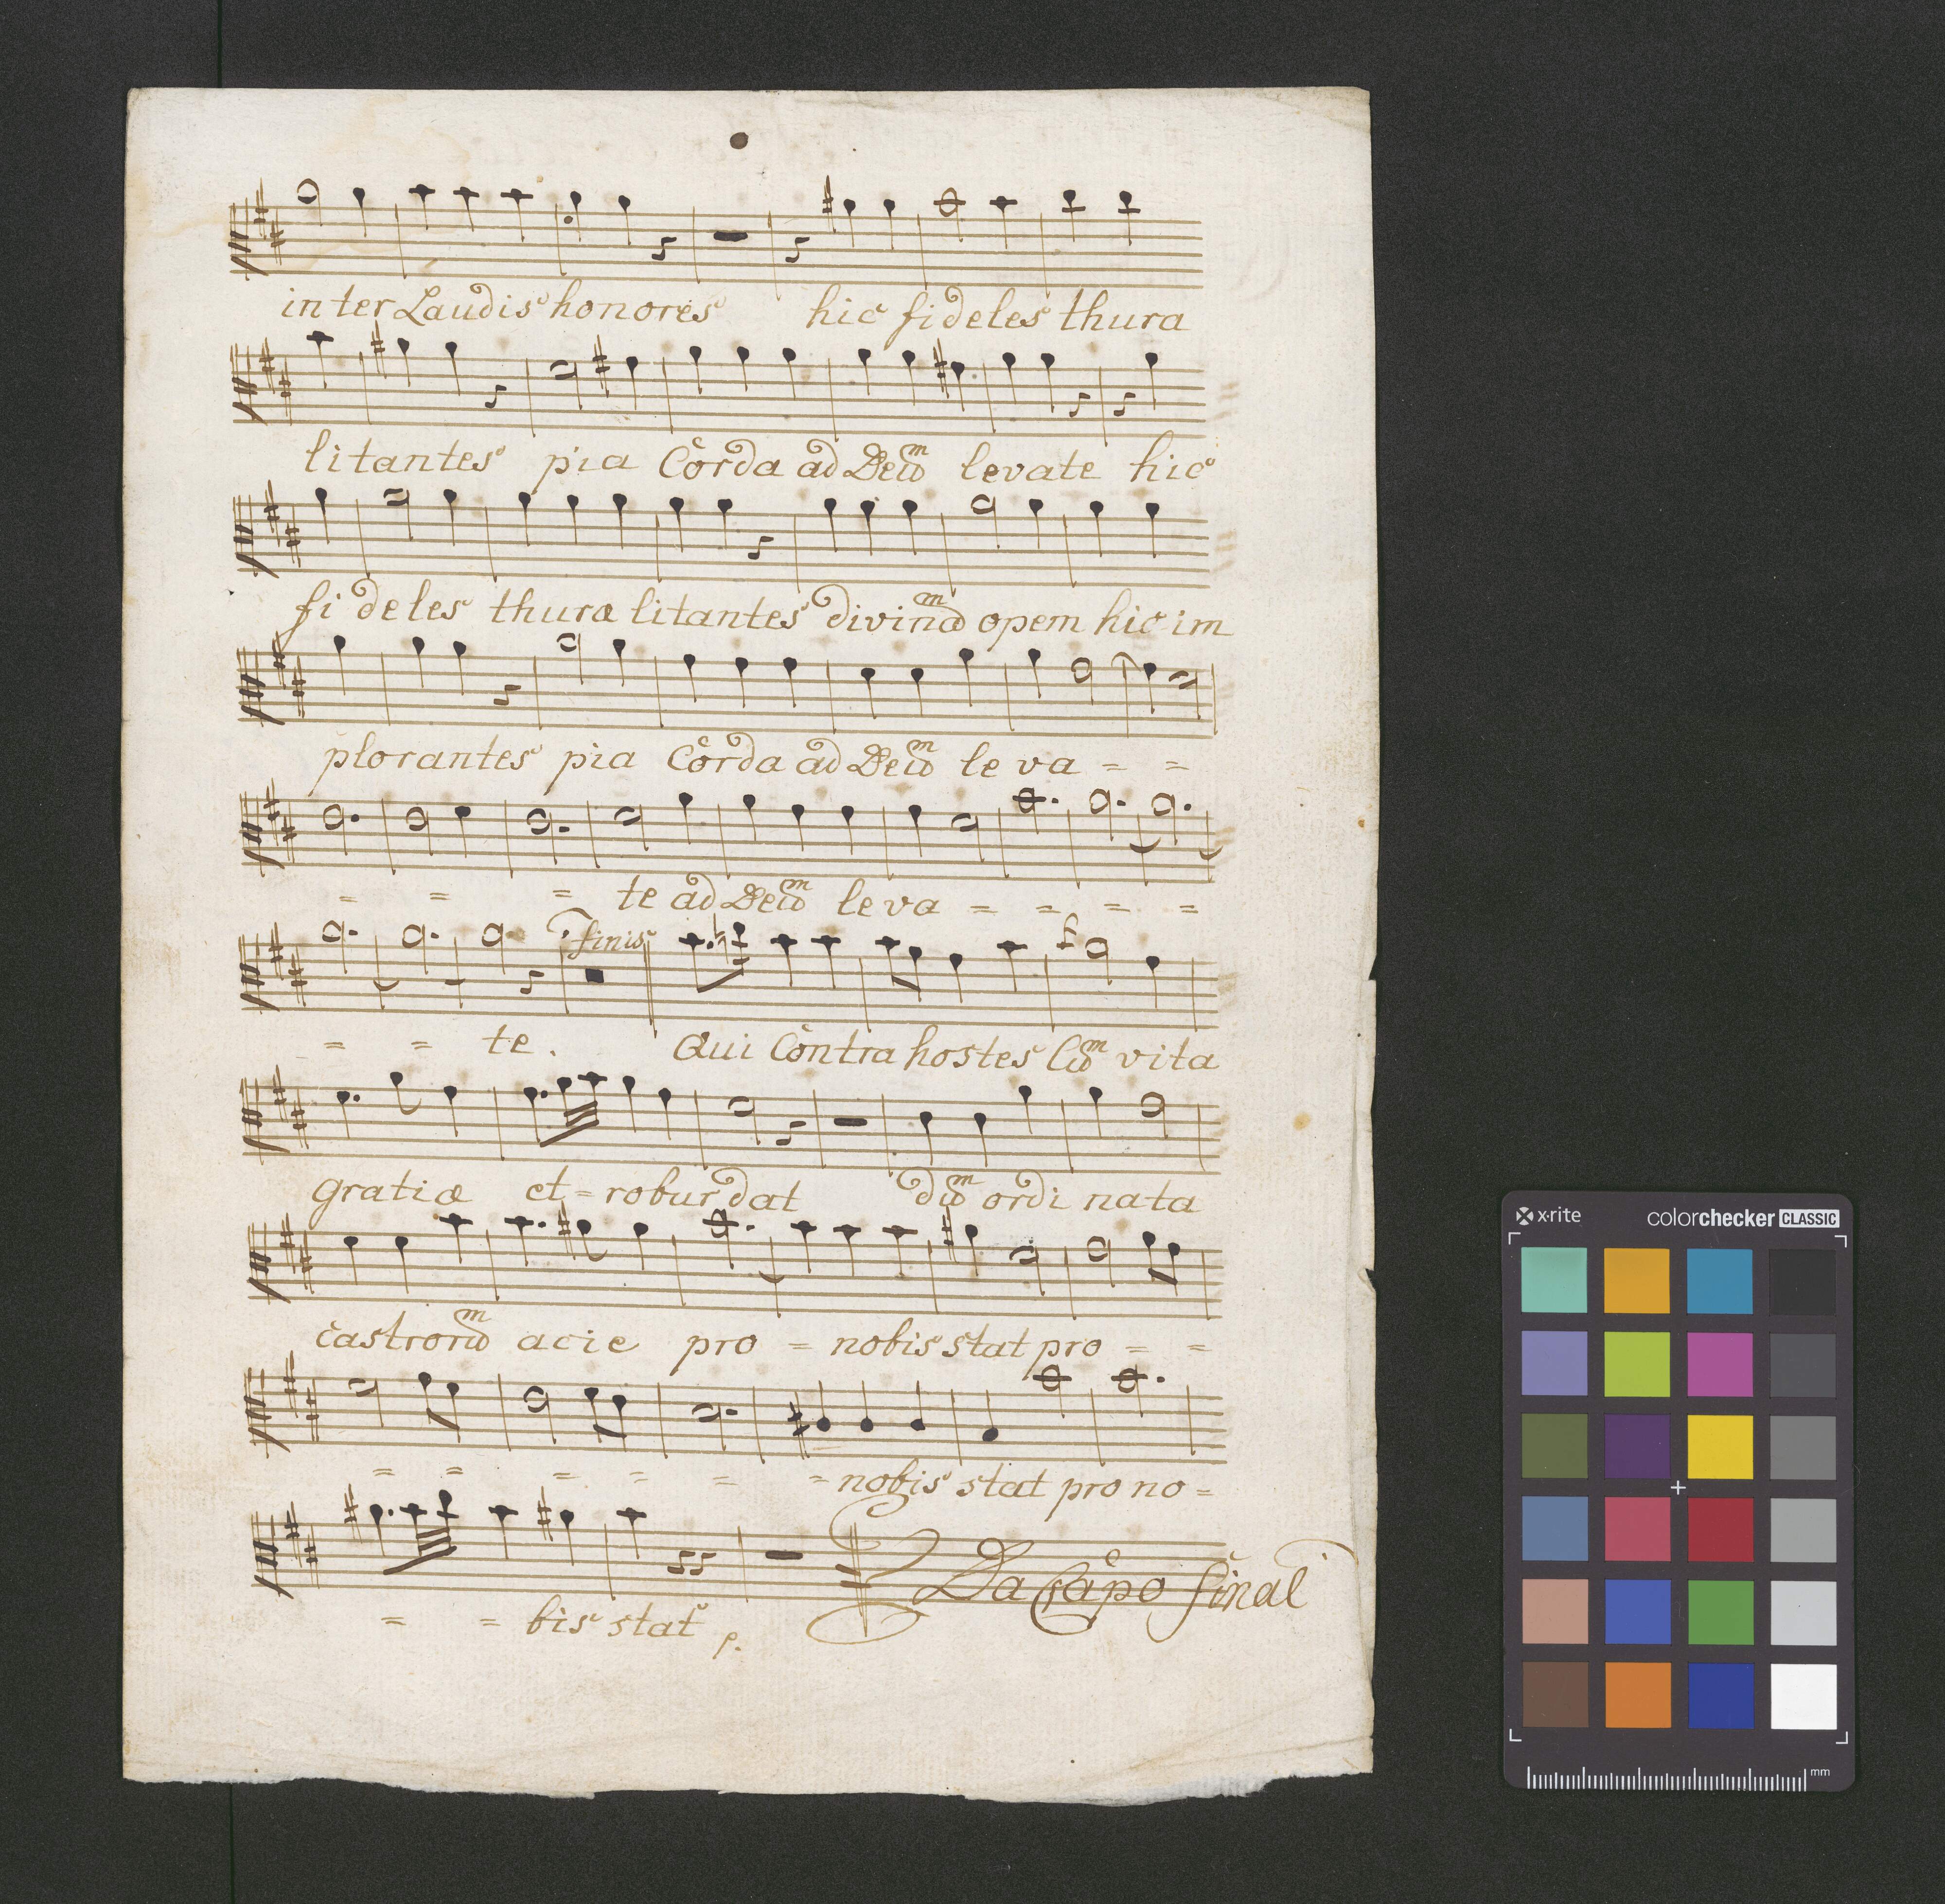 inter Laudis honores hic fideles thura
litantes pia Corda ad Deũm levate hic
fi deles thura litantes divinãm opem hic im
plorantes pia Corda ad Deũm le va = =
= = = te ad Deũm le va = = = =
finis
= = te. Qui Contra hostes Cũm vita
gratiæ et = robur dat dũm ordi nata
castrorũm acie pro = nobis stat pro = =
= = = = = = nobis stat pro no =
Da Capo final
= = bis stat
x-rite colorchecker CLASSIC
mm